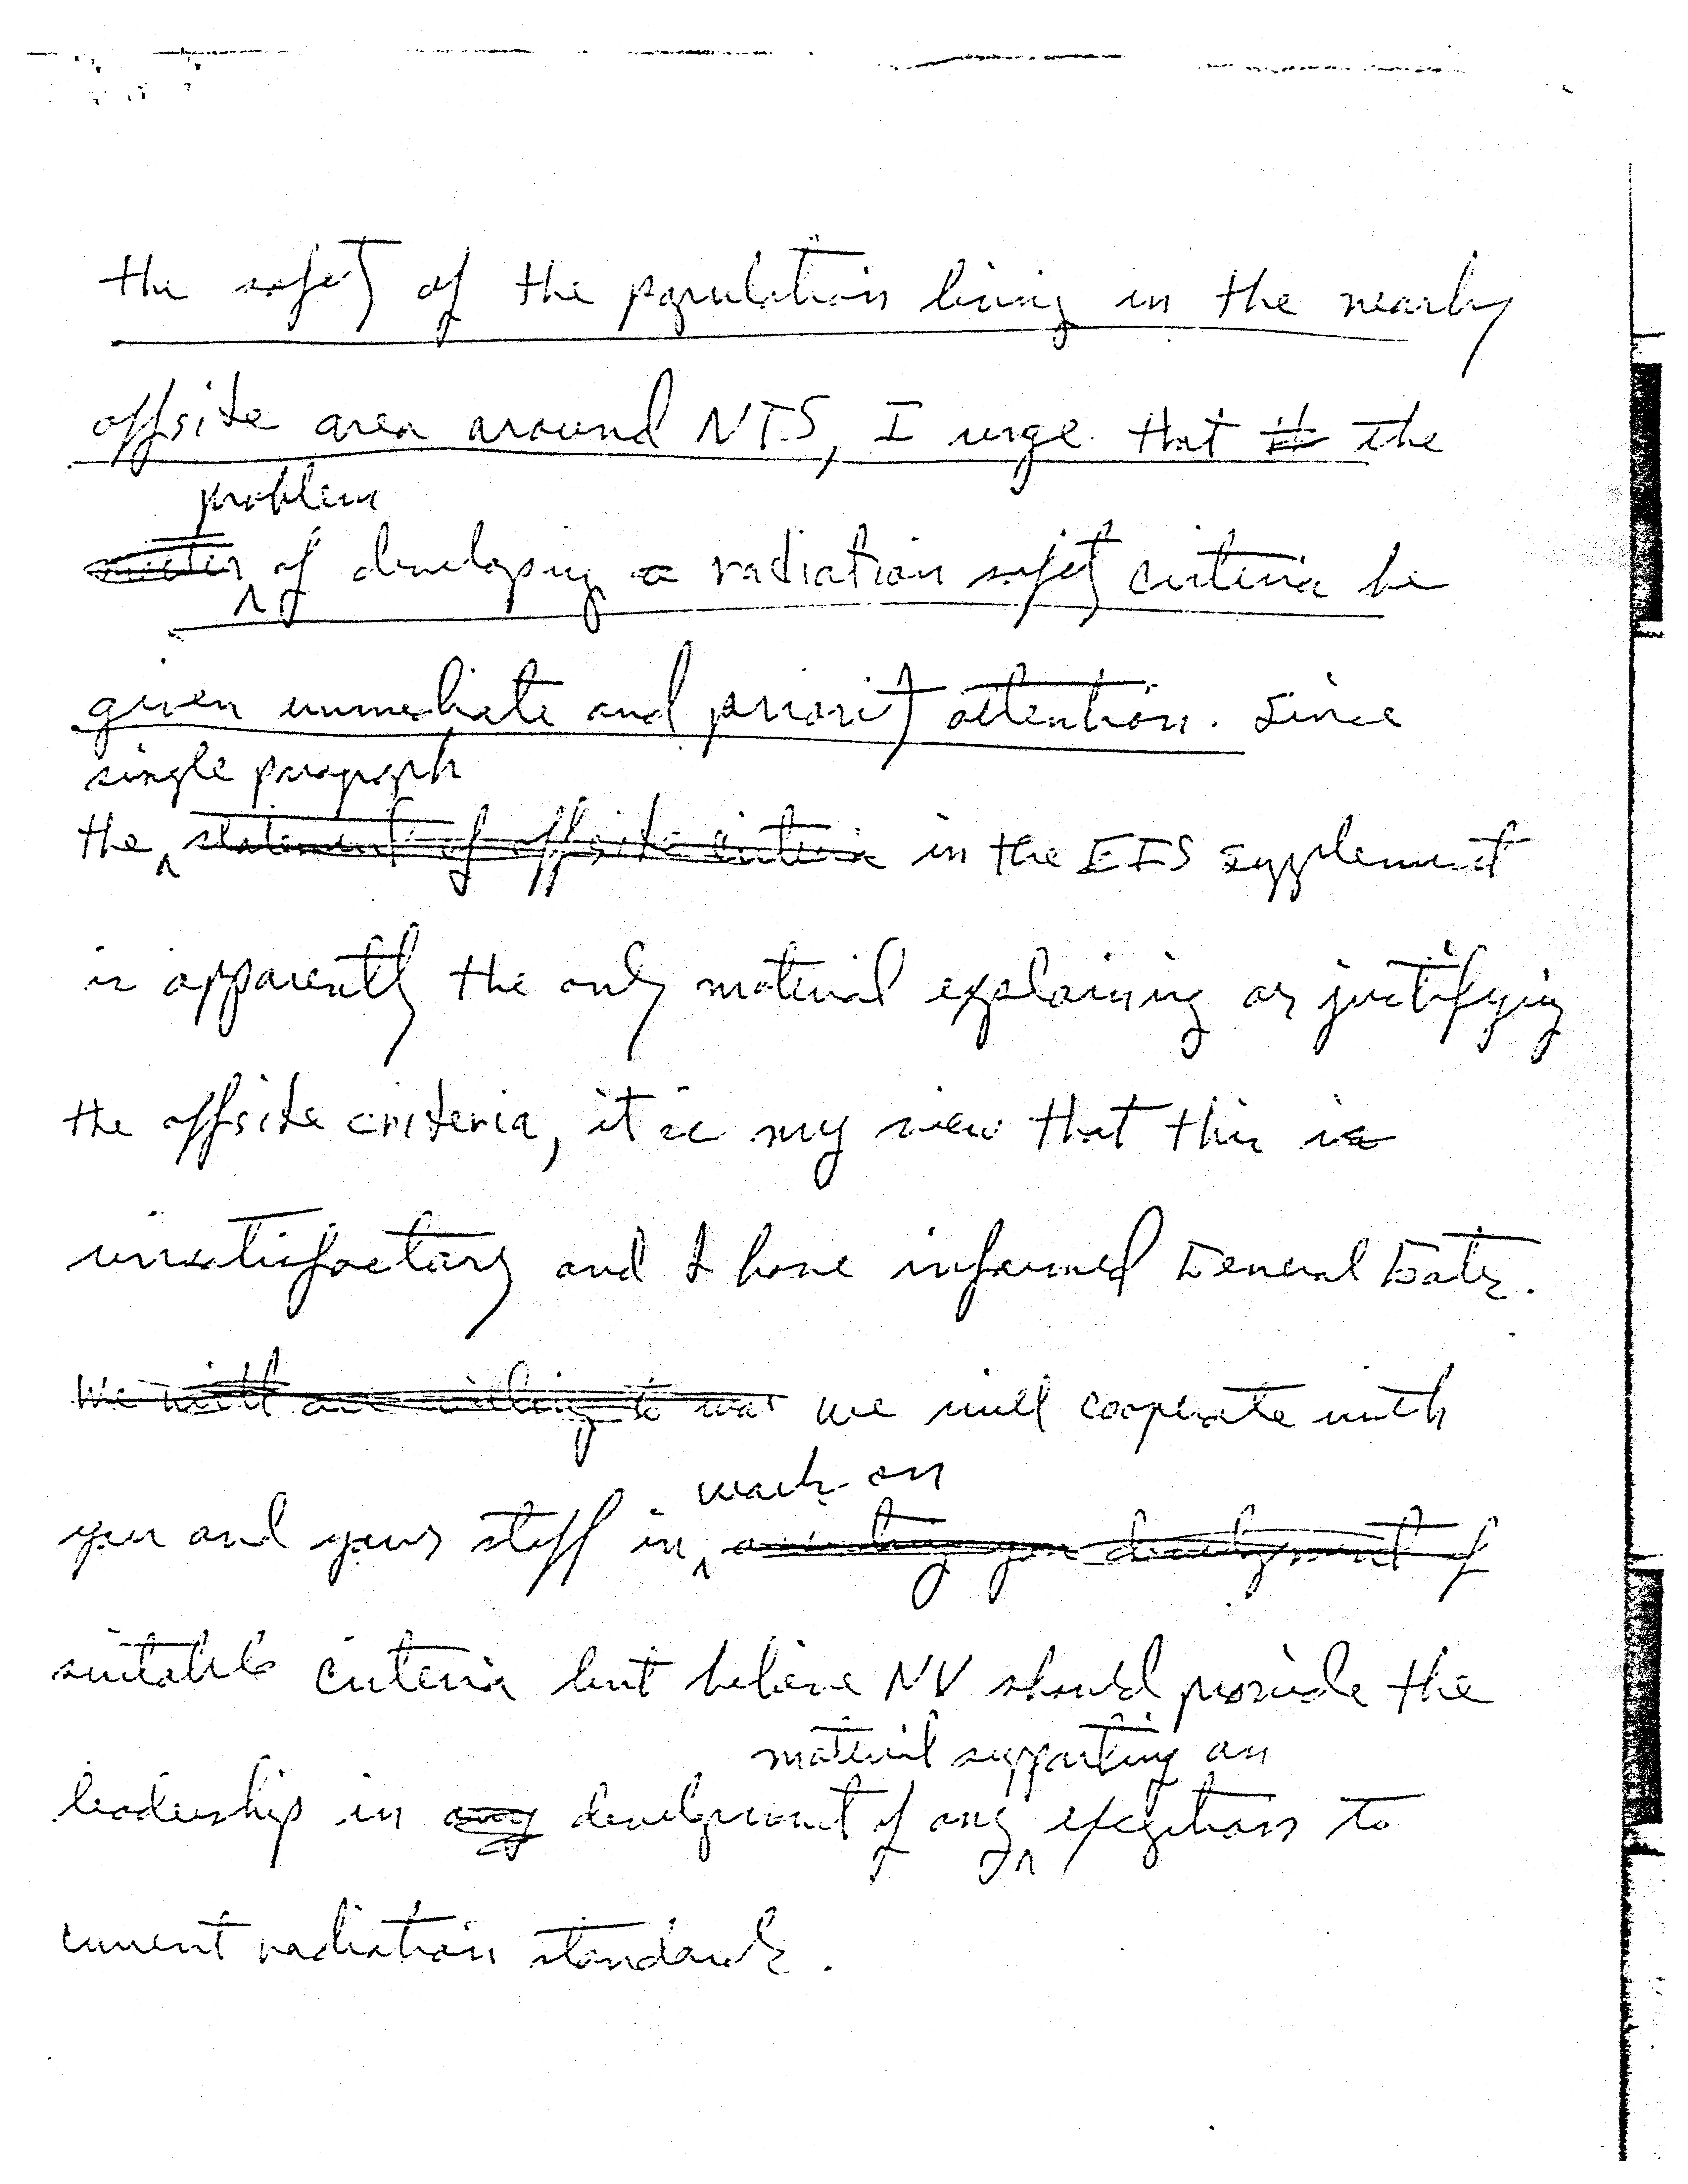 the safety of the population living in the nearby
offsite area around NTS, I urge that the the
problem
matter of developing a radiation safety criteria be
given immediate and priority attention. Since
single paragraph
the statement of offsite criteria in the EIS supplement
is apparently the only material explaining or justifying
the offsite criteria, it is my view that this is
unsatisfactory and I have informed General Gates.
We will are willing to we will cooperate with
work on
you and your staff in assisting your development of
suitable criteria but believe NV should provide the
material supporting an
leadership in any development of any exceptions to
current radiation standards.